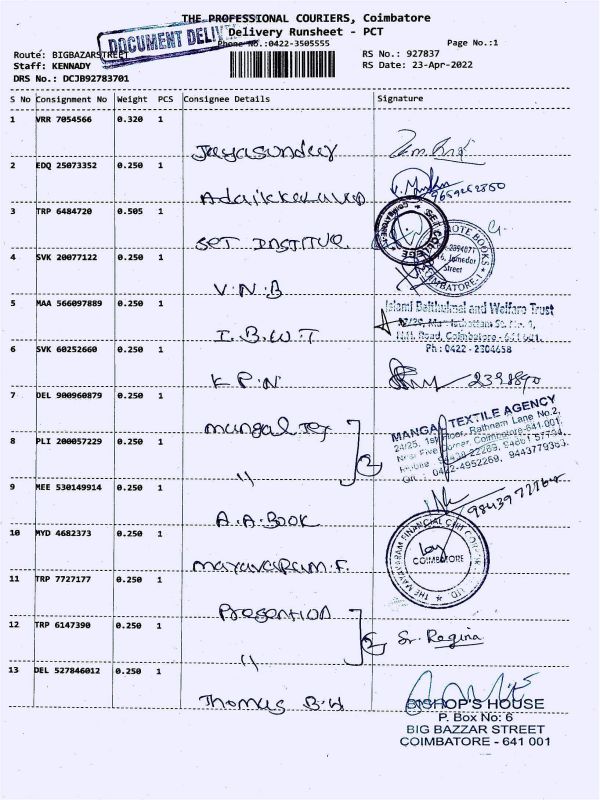 THE PROFESSIONAL COURIERS, Coimbatore
Delivery Runsheet - PCT
Phone No.:0422-3505555
Page No.:1
DOCUMENT DELIV
Route: BIGBAZARSTREET
RS No.: 927837
Staff: KENNADY
RS Date: 23-Apr-2022
DRS No.: DCJB92783701
S No Consignment No Weight PCS Consignee Details Signature
1 VRR 7054566 0.320 1
Jayasundur
2 EDQ 25073352 0.250 1
9659262850
3 TRP 6484720 0.505 1
SET INSTITUE
4 SVK 20077122 0.250 1
NOTE BOOKS
Street
COIMBATORE-1
V.N.B
5 MAA 566097889 0.250 1
Islami Baithulmal and Welfare Trust
I.B.W.T
N.H. Road, Coimbatore - 641 001.
Ph : 0422 - 2304658
6 SVK 60252660 0.250 1
K P.N
2398890
7 DEL 900960879 0.250 1
mangal Tex
MANGAL TEXTILE AGENCY
24/25, 1st Floor, Rathnam Lane No.2,
Near Five Corner, Coimbatore-641 001.
8 PLI 200057229 0.250 1
" 2
Off : 0422-4952269, 9443779363
9 MEE 530149914 0.250 1
A.A.BOOK
10 MYD 4682373 0.250 1
mayavaram.F.
THE MAYAVARAM FINANCIAL CHIT CORPORATION LTD
COIMBATORE
11 TRP 7727177 0.250 1
Presention
12 TRP 6147390 0.250 1
" 2
Sr. Regina
13 DEL 527846012 0.250 1
Thomas B.H
BISHOP'S HOUSE
P. Box No: 6
BIG BAZZAR STREET
COIMBATORE - 641 001